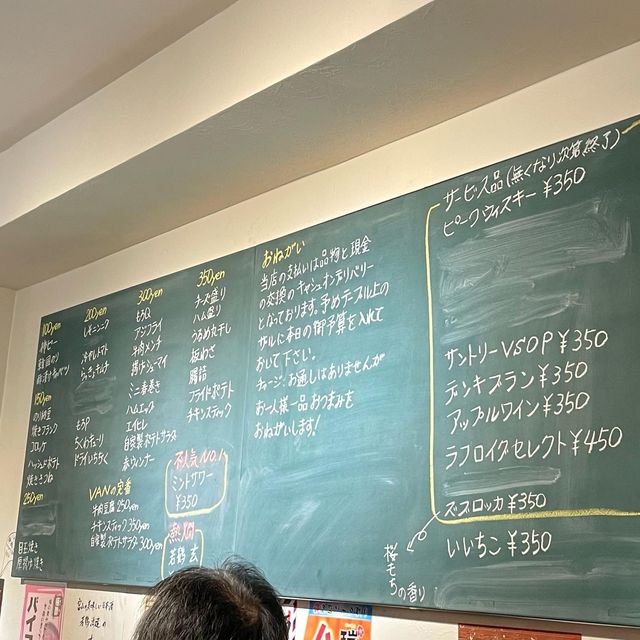 100yen
柿ピー
韓国のり
150yen
のり納豆
焼きフラック
コロッケ
ハッシュドポテト
焼きミフね
250yen
目玉焼き
200yen
レモンニンク
冷やしトマト
もうP
ちくわきゅうり
ドライいちぢく
300yen
もうQ
アジフライ
牛肉メンチ
揚げシューマイ
ミニ春巻き
ハムエッグ
エイヒレ
自家製ポテトサラダ
赤ウィンナー
350yen
チーズ盛り
ハム盛り
うるめ丸干し
板わさ
腸詰
フライドポテト
チキンスティック
VANの定番
牛肉豆腐 250yen
チキンスティック 350yen
自家製ポテトサラダ 300yen
不人気No.1
ミントサワー
¥350
熱燗
若鶴 玄
おねがい
当店の支払いは品物と現金
の交換のキャッシュオンデリバリー
となっております。予めテーブル上の
ザルに本日の御予算を入れて
おいて下さい。
チャージ、お通しはありませんが
お一人様一品おつまみを
おねがいします!
サービス品(無くなり次第終了)
ピークウィスキー ¥350
サントリーVSOP ¥350
デンキブラン ¥350
アップルワイン ¥350
ラフロイグセレクト ¥450
ズブロッカ ¥350
いいちこ ¥350
桜もちの香り
バイス